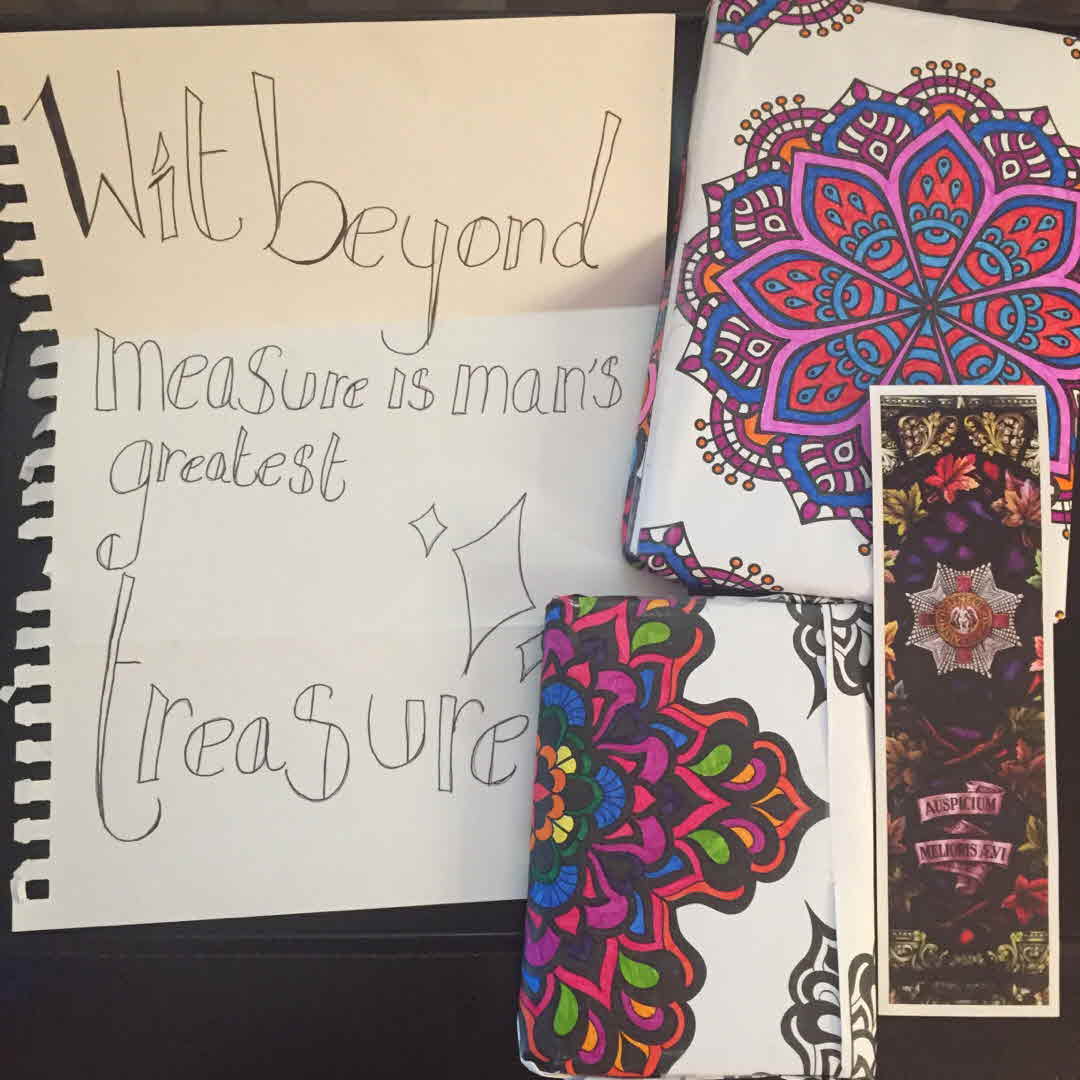 Wit beyond
measure is man's
greatest
treasure
AUSPICIUM
MELIORIS ÆVI